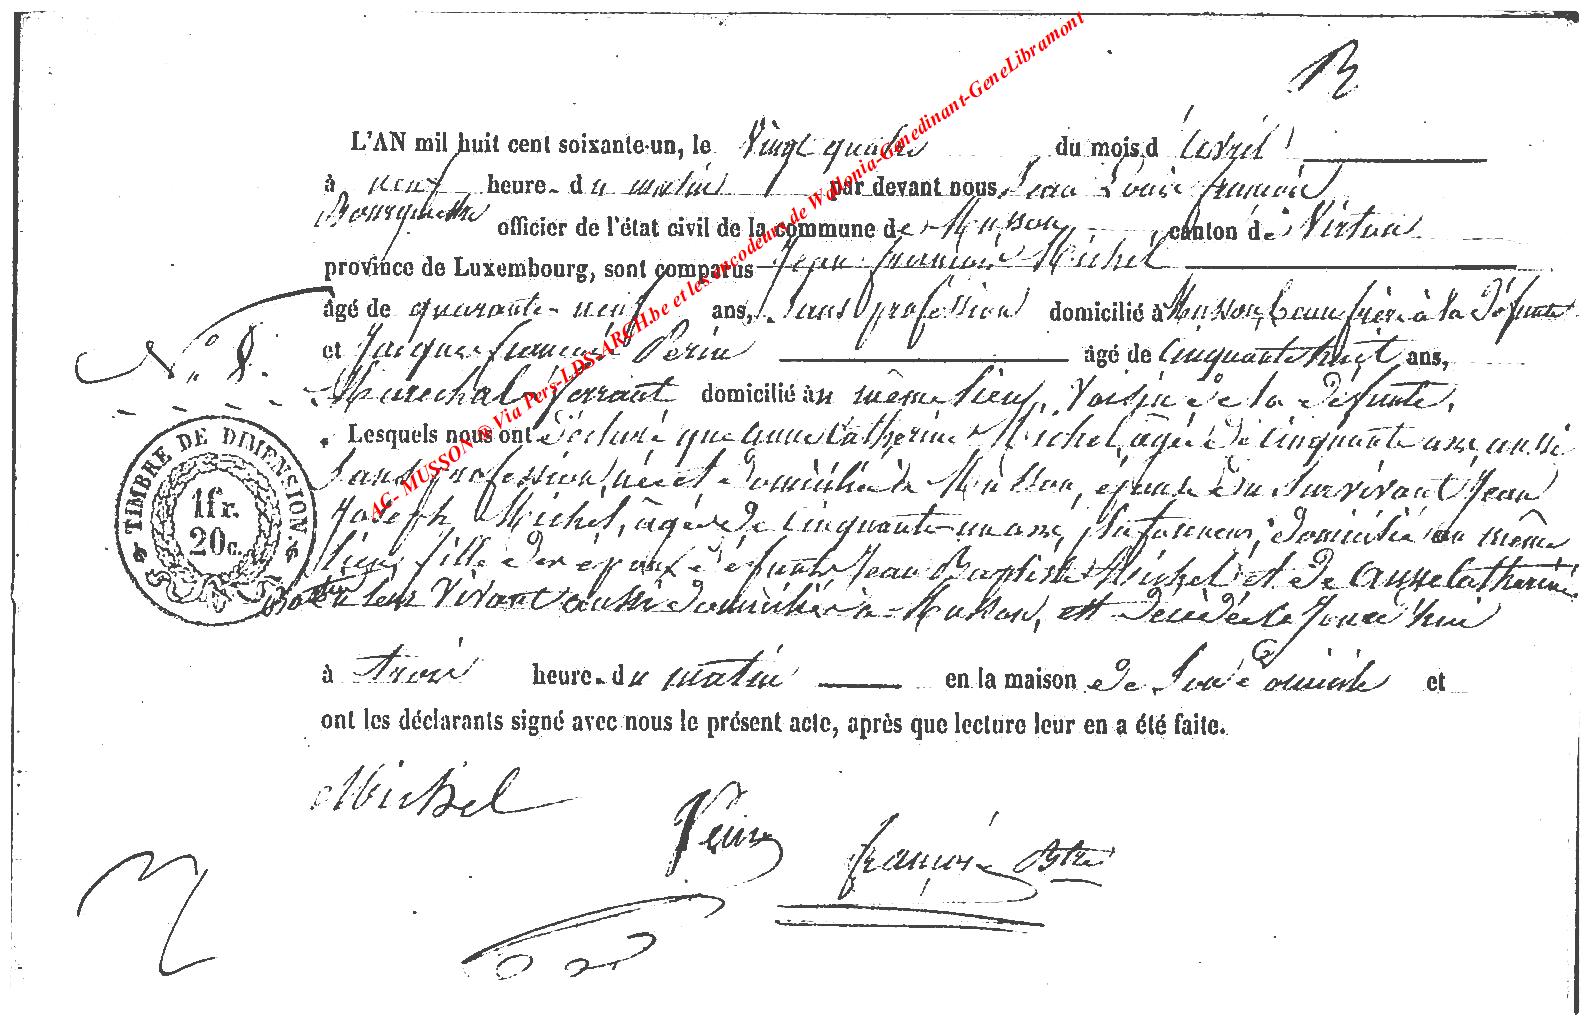 L'AN mil huit cent soixante-un, le Vingt quatre du mois d'avril
à neuf heure. du matin par devant nous Jean Louis françois
Bourguignon officier de l'état civil de la commune de Musson canton de Virton
province de Luxembourg, sont comparus Jean françois Michel
âgé de quarante-neuf ans, Sans profession domicilié à Musson, beau frère à la défunte
N.° 8.
et Jacques françois Perin âgé de Cinquante huit ans,
Marechal ferrant domicilié au même lieu, Voisin de la défunte.
Lesquels nous ont déclaré que anne Catherine Michel, âgée de Cinquante ans, aussi
Sans profession, née et domiciliée à Musson, épouse du Survivant Jean
Joseph Michel, âgé de Cinquante-un ans, domicilié au même
lieu, fille des époux défunts Jean Baptiste Michel et de anne Catherine
en leur Vivant aussi domiciliés à Musson, est décédée Ce Jourd'hui
à trois heure. du matin en la maison de Son domicile et
ont les déclarants signé avec nous le présent acte, après que lecture leur en a été faite.
TIMBRE DE DIMENSION.
1fr.
20c.
Michel
Perin
françois
AG- MUSSON @ Via Pers-LDS-ARCH.be et les encodeurs de Wallonia-Genedinant-GeneLibramont